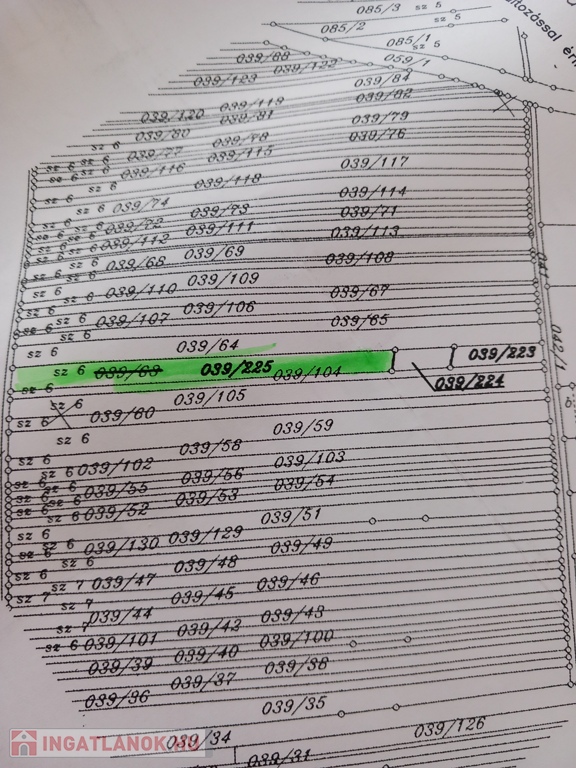 085/3 sz 5
085/2
085/1
sz 5
059/1
ltozással ér
039/88
039/122
039/123
039/84
039/82
039/120 039/119
039/81 039/79
039/80 039/78 039/76
sz 6 039/77 039/115
sz 6 sz 6 039/116 039/117
sz 6 039/118
sz 6 sz 6 039/74 039/114
039/73 039/71
sz 6 039/72 039/111 039/113
sz 6 sz 6 039/112 039/69
sz 6 039/68 039/108
sz 6 039/109 039/67
sz 6 sz 6 039/110 039/106
sz 6 sz 6 039/107 039/65
sz 6 039/64
sz 6 039/63 039/225 039/104 039/224 039/223
042/1
sz 6 039/105
sz 6 039/60
sz 6 039/59
039/58
sz 6 sz 6 039/102 039/103
sz 6 sz 6 039/55 039/56 039/54
sz 6 sz 6 039/52 039/53
039/51
sz 6 sz 6 039/130 039/129 039/49
sz 6 sz 6 039/48
sz 6 sz 7 039/47 039/46
sz 7 sz 7 039/45
sz 7 039/44 039/43
039/42 039/100
sz 6 039/101 039/40
039/39 039/38
039/37
039/36 039/35
039/34 039/126
039/31
INGATLANOK.HU